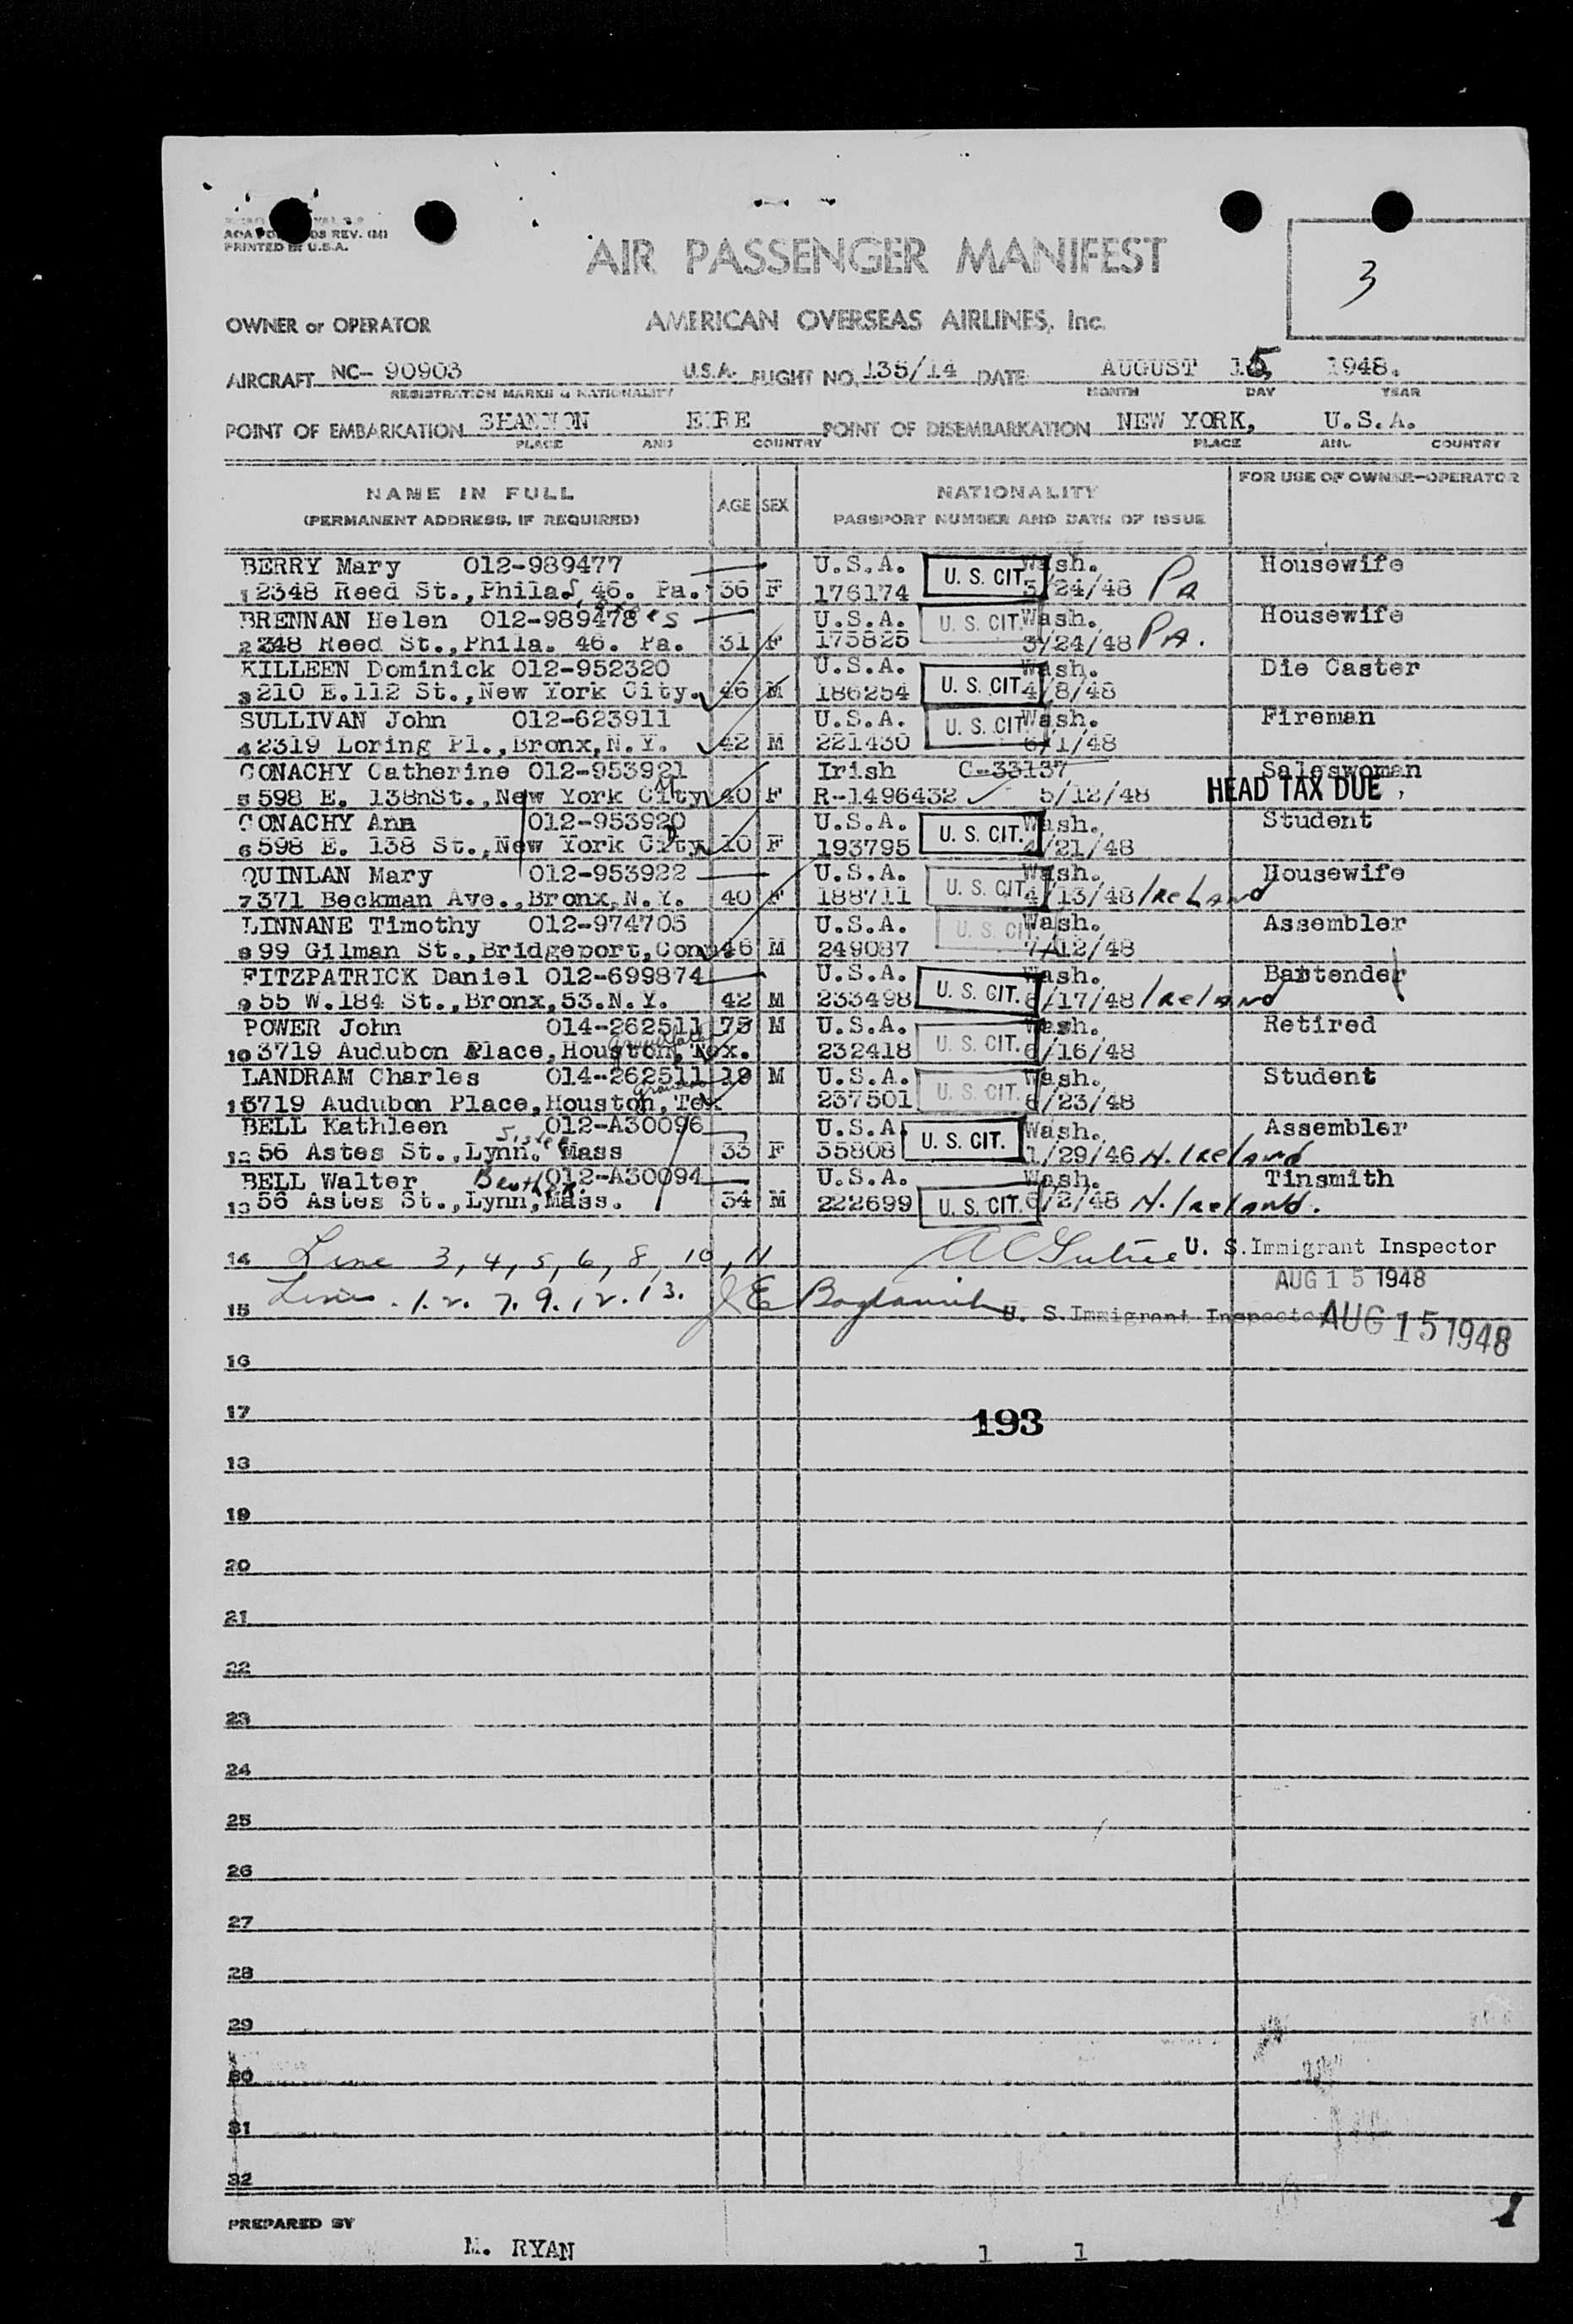 PRINTED IN U.S.A.
AIR PASSENGER MANIFEST
3
OWNER or OPERATOR AMERICAN OVERSEAS AIRLINES, Inc.
AIRCRAFT NC- 90903 U.S.A. FLIGHT NO. 135/14 DATE AUGUST 15, 1948.
REGISTRATION MARKS & NATIONALITY MONTH DAY YEAR
POINT OF EMBARKATION SHANNON EIRE POINT OF DISEMBARKATION NEW YORK, U.S.A.
PLACE AND COUNTRY PLACE AND COUNTRY
NAME IN FULL AGE SEX NATIONALITY FOR USE OF OWNER-OPERATOR
(PERMANENT ADDRESS, IF REQUIRED) PASSPORT NUMBER AND DATE OF ISSUE
BERRY Mary 012-989477 U.S.A. U. S. CIT. Wash. Housewife
1 2348 Reed St.,Phila. 46. Pa. 36 F 176174 3/24/48 Pa
BRENNAN Helen 012-989478 U.S.A. U. S. CIT. Wash. Housewife
2 348 Reed St.,Phila. 46. Pa. 31 F 175825 3/24/48 PA.
KILLEEN Dominick 012-952320 U.S.A. U. S. CIT. Wash. Die Caster
3 210 E.112 St.,New York City. 46 M 186254 4/8/48
SULLIVAN John 012-623911 U.S.A. U. S. CIT. Wash. Fireman
4 2319 Loring Pl.,Bronx,N.Y. 42 M 221430 6/1/48
CONACHY Catherine 012-953921 Irish C-33137 Saleswoman
5 598 E. 138nSt.,New York City 40 F R-1496432 5/12/48 HEAD TAX DUE
CONACHY Ann 012-953920 U.S.A. U. S. CIT. Wash. Student
6 598 E. 138 St.,New York City 10 F 193795 4/21/48
QUINLAN Mary 012-953922 U.S.A. U. S. CIT. Wash. Housewife
7 371 Beekman Ave.,Bronx,N.Y. 40 F 188711 4/13/48 Ireland
LINNANE Timothy 012-974705 U.S.A. U. S. CIT. Wash. Assembler
8 99 Gilman St.,Bridgeport,Conn. 46 M 249087 7/12/48
FITZPATRICK Daniel 012-699874 U.S.A. U. S. CIT. Wash. Bartender
9 55 W.184 St.,Bronx,53.N.Y. 42 M 233498 6/17/48 Ireland
POWER John 014-262511 75 M U.S.A. U. S. CIT. Wash. Retired
10 3719 Audubon Place,Houston,Tex. 232418 6/16/48
LANDRAM Charles 014-262511 19 M U.S.A. U. S. CIT. Wash. Student
11 3719 Audubon Place,Houston,Tex 237501 6/23/48
BELL Kathleen 012-A30096 U.S.A. U. S. CIT. Wash. Assembler
12 56 Astes St.,Lynn. Mass Sister 33 F 35808 1/29/46 N. Ireland
BELL Walter Brother 012-A30094 U.S.A. Wash. Tinsmith
13 56 Astes St.,Lynn,Mass. 34 M 222699 U. S. CIT. 6/2/48 N. Ireland.
14 Line 3, 4, 5, 6, 8, 10, 11 U. S. Immigrant Inspector
AUG 15 1948
15 Lines. 1. 2. 7. 9. 12. 13. U. S. Immigrant Inspector AUG 15 1948
16
17
193
18
19
20
21
22
23
24
25
26
27
28
29
30
31
32
1
PREPARED BY
M. RYAN 1 1